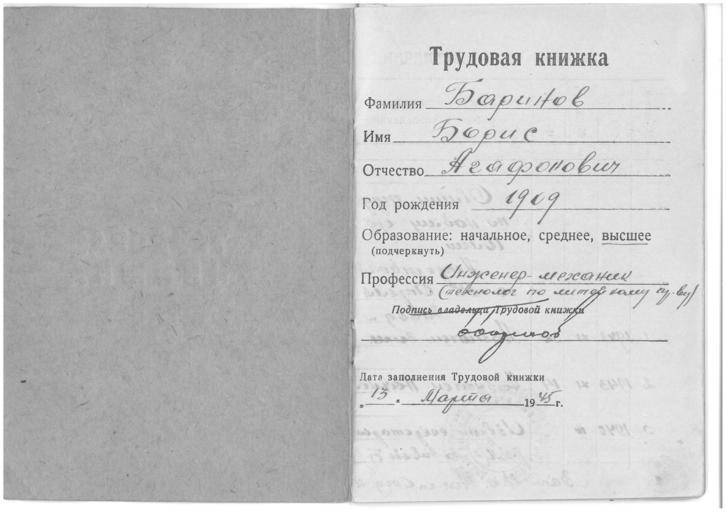 Трудовая книжка
Фамилия Баринов
Имя Борис
Отчество Агафонович
Год рождения 1909
Образование: начальное, среднее, высшее
(подчеркнуть)
Профессия Инженер-механик
(технолог по литейному
Подпись владельца Трудовой книжки
Дата заполнения Трудовой книжки
„13“ Марта 1945 г.